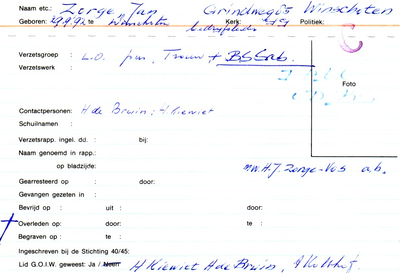 Naam etc.: Zorge, Jan Grindweg 05 Winschoten
Geboren: 29.9.92 te Winschoten Kerk: Politiek:
bedrijfsleider
Verzetsgroep : L.O. pan, Trouw + BS Sab.
Verzetswerk
Foto
Contactpersonen: H de Bruin; H Kiewiet
Schuilnaam :
Verzetsrapp. ingel. dd. : bij:
Naam genoemd in rapp.:
op bladzijde: mw. H.J. Zorge-Vos a.b.
Gearresteerd op : door:
Gevangen gezeten in :
Bevrijd op : uit : door:
Overleden op: door: te :
Begraven op : te :
Ingeschreven bij de Stichting 40/45:
Lid G.O.I.W. geweest: Ja / Neen H Kiewiet H de Bruin,